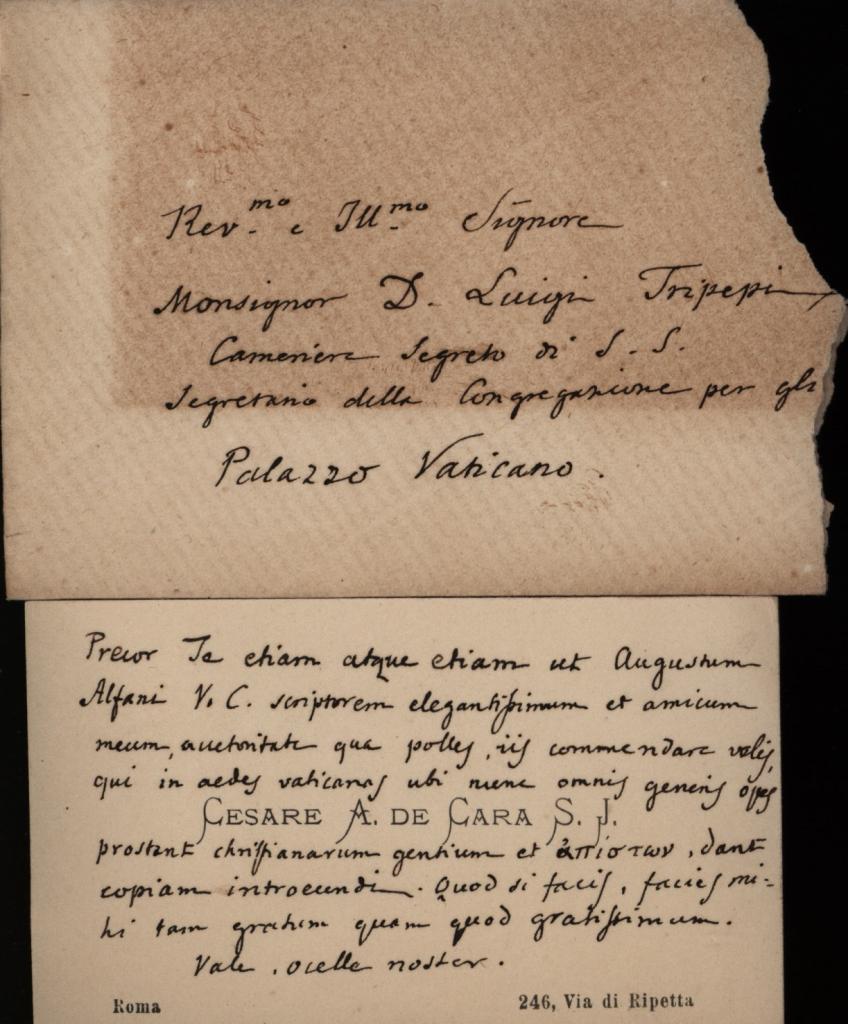 Rev.mo e Ill.mo Signore
Monsignor D. Luigi Tripepi
Cameriere Segreto di S. S.
Segretario della Congregazione per gli
Palazzo Vaticano.
Precor Te etiam atque etiam ut Augustum
Alfani V. C. scriptorem elegantissimum et amicum
meum, auctoritate qua polles, iis commendare velis,
qui in aedes vaticanas ubi nunc omnis generis opes
CESARE A. DE CARA S. J.
prostant christianarum gentium et ἀπίστων, dant
copiam introeundi. Quod si facis, facies mi-
hi tam gratum quam quod gratissimum.
Vale, ocelle noster.
Roma
246, Via di Ripetta